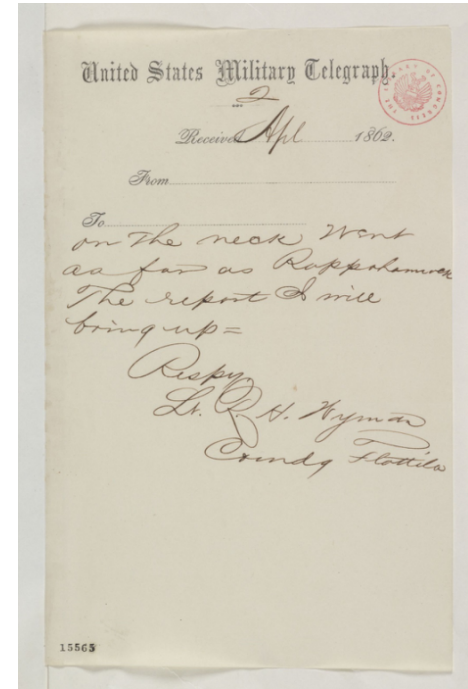 United States Military Telegraph.
2
Received Apl 1862.
From
To
on the neck Went
as far as Rappahannock
The report I will
bring up =
Respy
Lt. R. H. Wyman
Comdg Flottila
15565